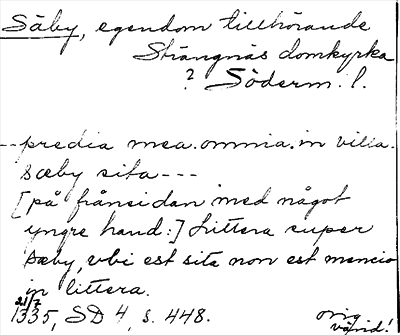 Säby, egendom tillhörande
Strängnäs domkyrka
? Söderm. l.
--predia mea.omnia.in villa.
sæby sita---
[på frånsidan med något
yngre hand:] Littera super
sæby, vbi est sita non est mencio
in littera.
21/7
1335, SD 4, s. 448. orig.